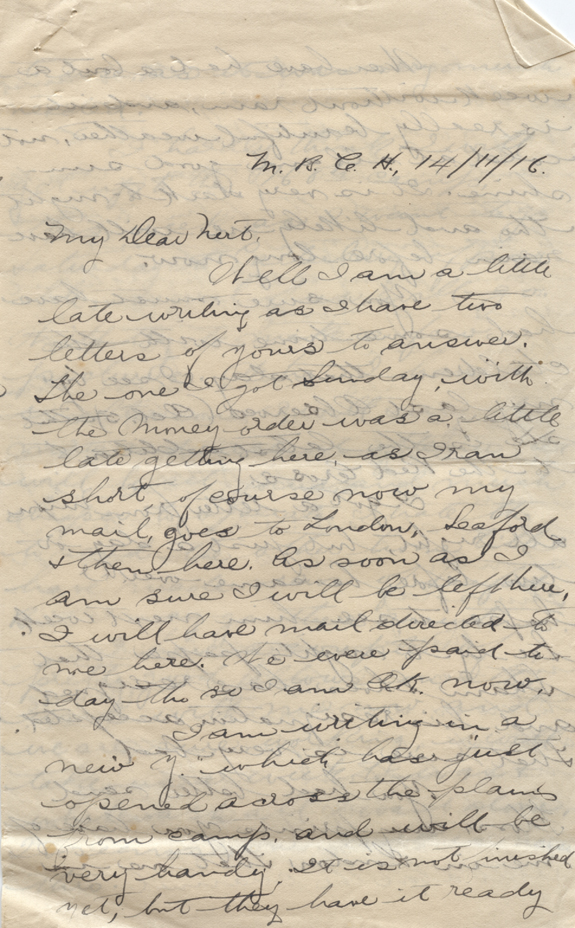 M. B. C. H., 14/11/16.
My Dear Nert.
Well I am a little
late writing as I have two
letters of yours to answer.
The one I got Sunday, with
the money order was a little
late getting here, as I ran
short, of course now my
mail, goes to London, Seaford
& then here. As soon as I
am sure I will be left here,
I will have mail directed to
me here. We were paid to-
day tho so I am O.K. now.
I am writing in a
new "Y" which has just
opened across the plains
from camp. and will be
very handy. It is not inished
yet, but they have it ready